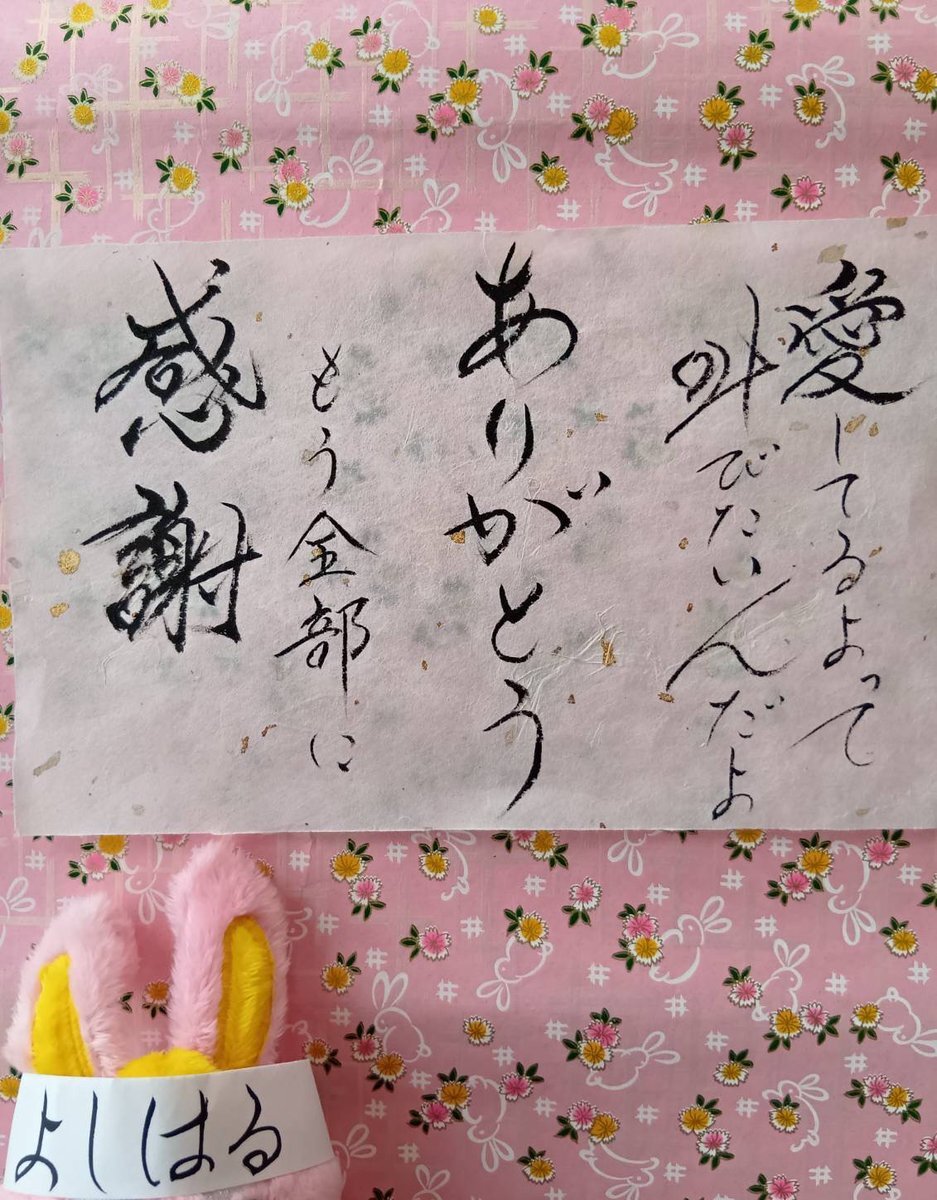 愛してるよって
叫びたいんだよ
ありがとう
もう全部に
感謝
よしはる